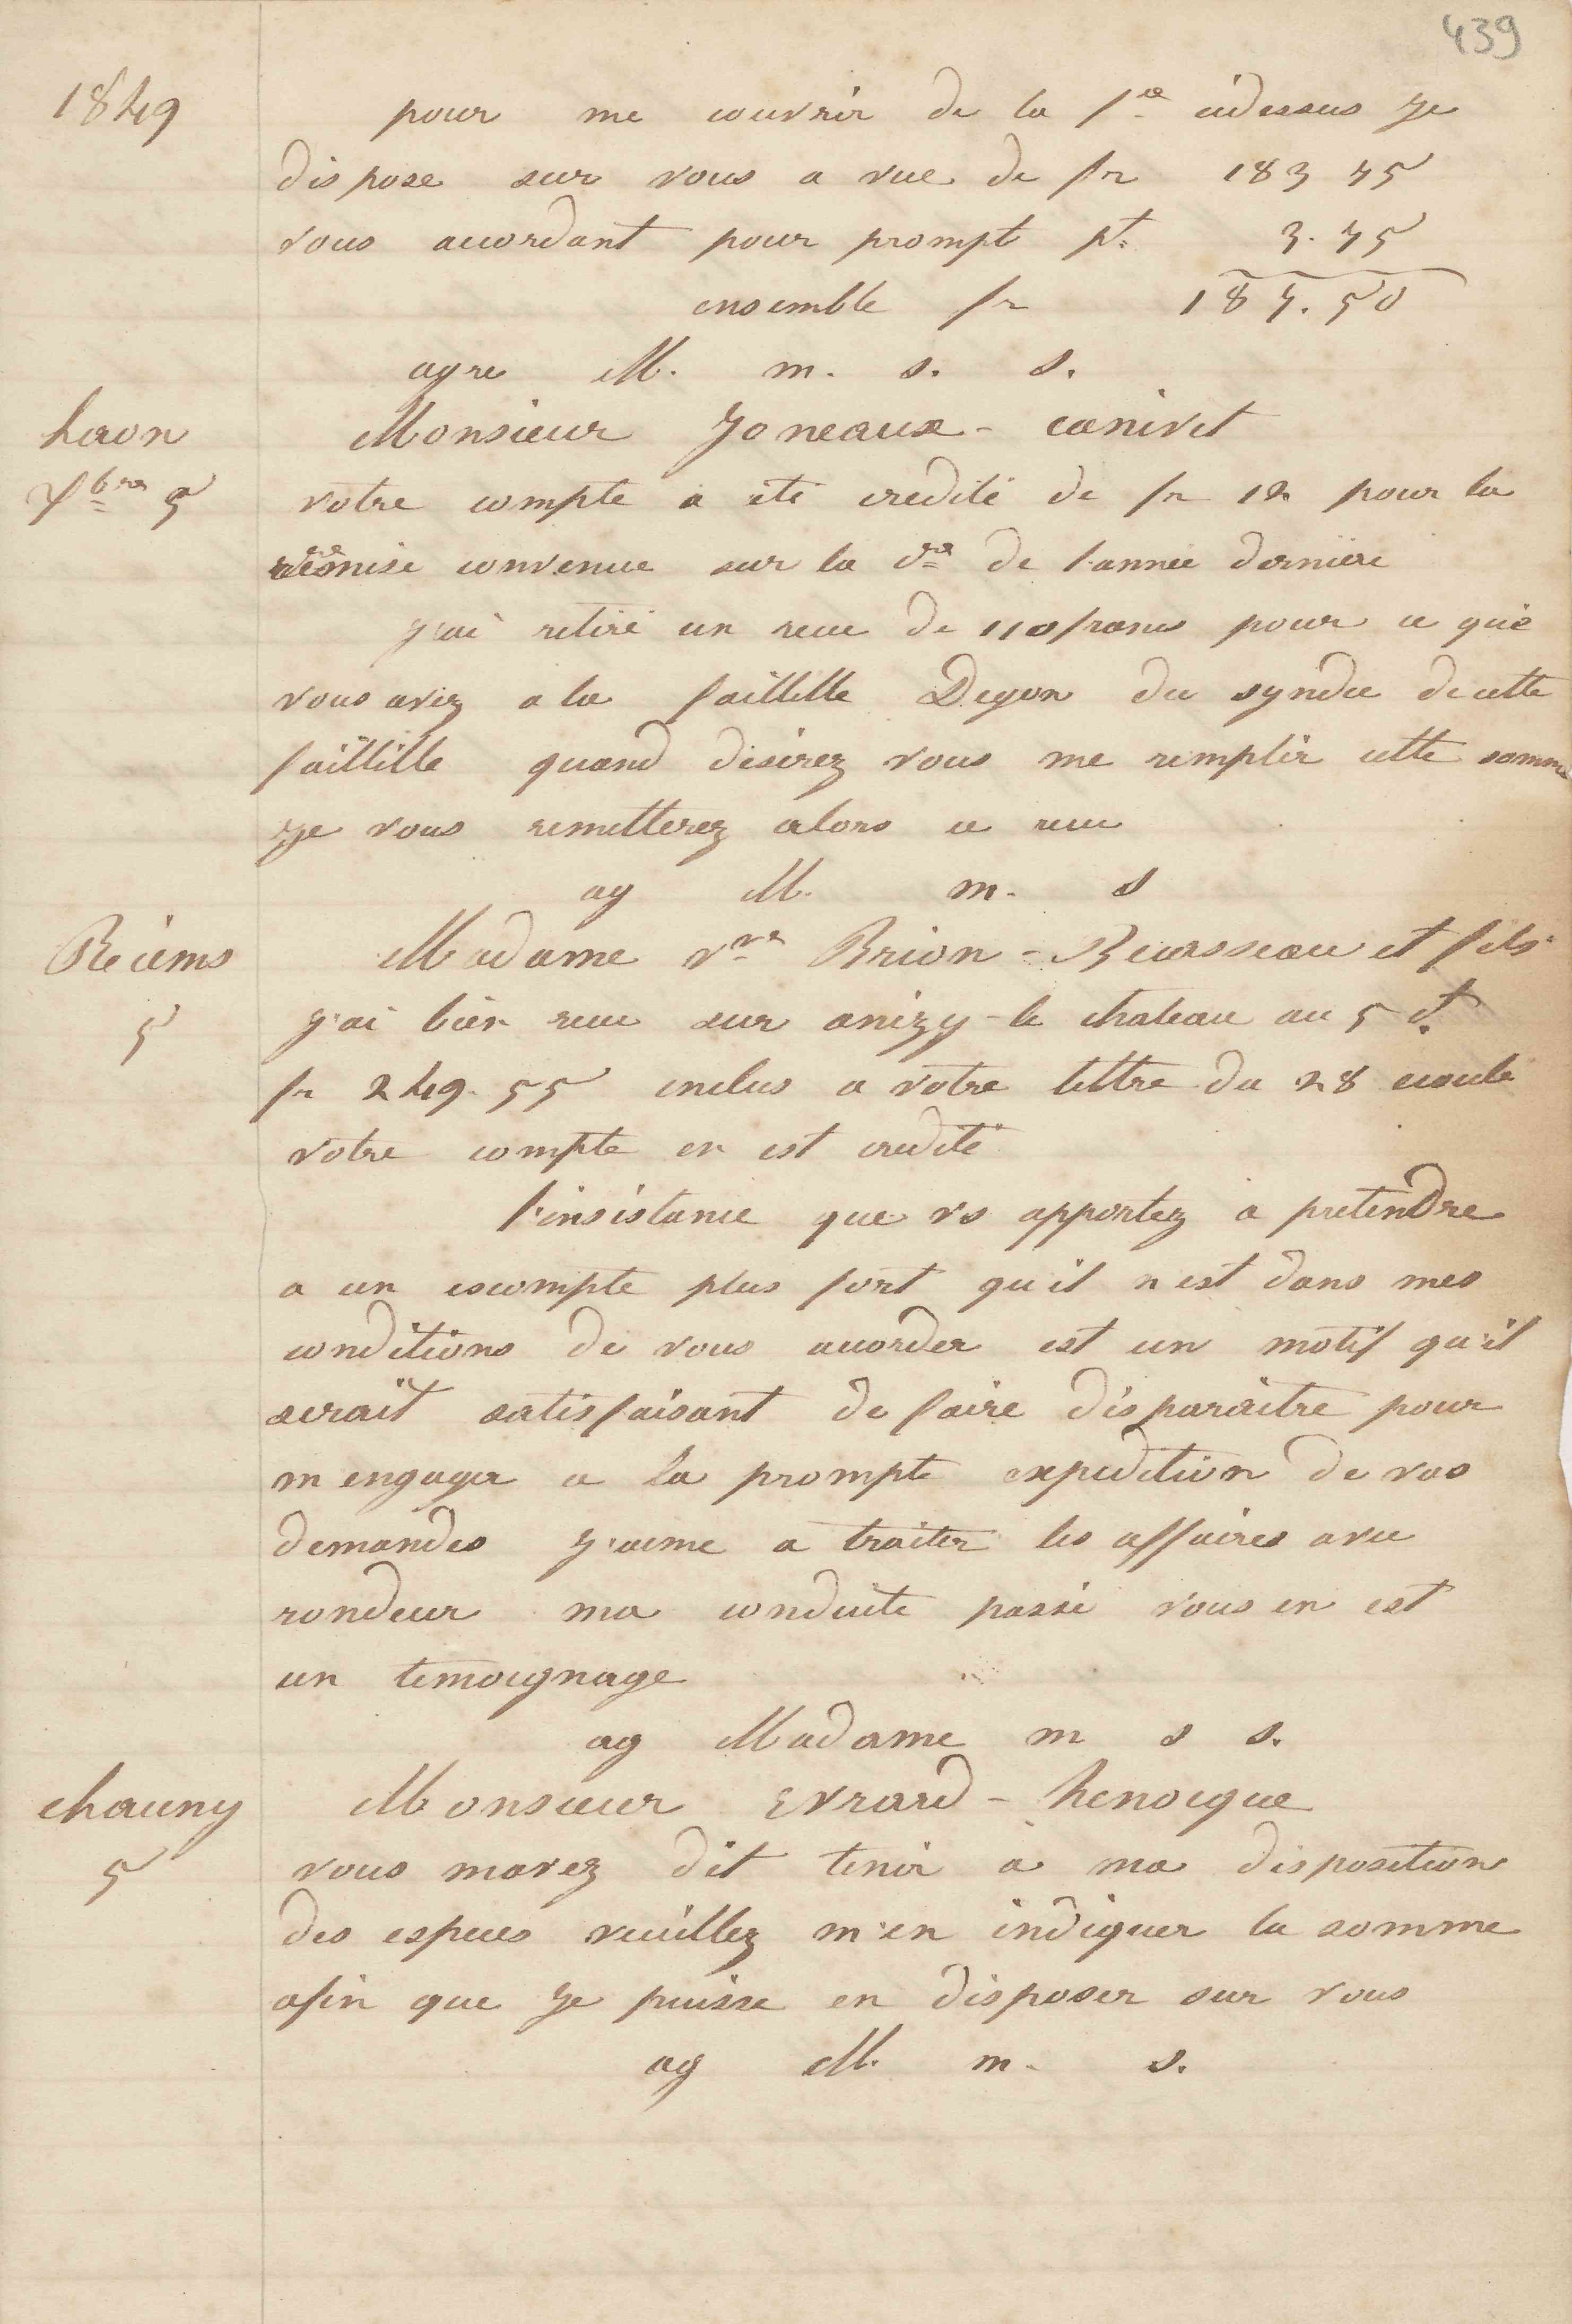 439
1849
pour me couvrir de la fre cidessus je
dispose sur vous a vue de fr 183 75
vous accordant pour prompt pt. 3. 75
ensemble fr 187. 50
agre M. m. s. s.
Laon
7bre 5
Monsieur Joneaux - canivet
votre compte a eté credité de fr 12 pour la
remise convenue sur la dre de l'année dernière
j'ai retiré un recu de 110 francs pour ce que
vous aviez a la faillille Degon du syndic de cette
faillille quand désirez vous me remplir cette somme
je vous remetterez alors ce recu
ag M. m. s
Reiems
5
Madame vve Brion - Beuasseau et fils
j'ai bien recu sur anizy - le chateau au 5 ct.
fr 249. 55 inclus a votre lettre du 28 ecoulé
votre compte en est credité
l'insistance que vs apportez a pretendre
a un escompte plus fort qu'il n est dans mes
conditions de vous accorder est un motif qu'il
serait satisfaisant de faire disparaitre pour
m engager a la prompte expedition de vos
demandes j'aime a traiter les affaires avec
rondeur ma conduite passé vous en est
un temoignage
ag Madame m s s.
chauny
5
Monsieur Evrard - henocque
vous mavez dit tenir a ma disposition
des especes veuillez m'en indiquer la somme
afin que je puisse en disposer sur vous
ag M. m. s.